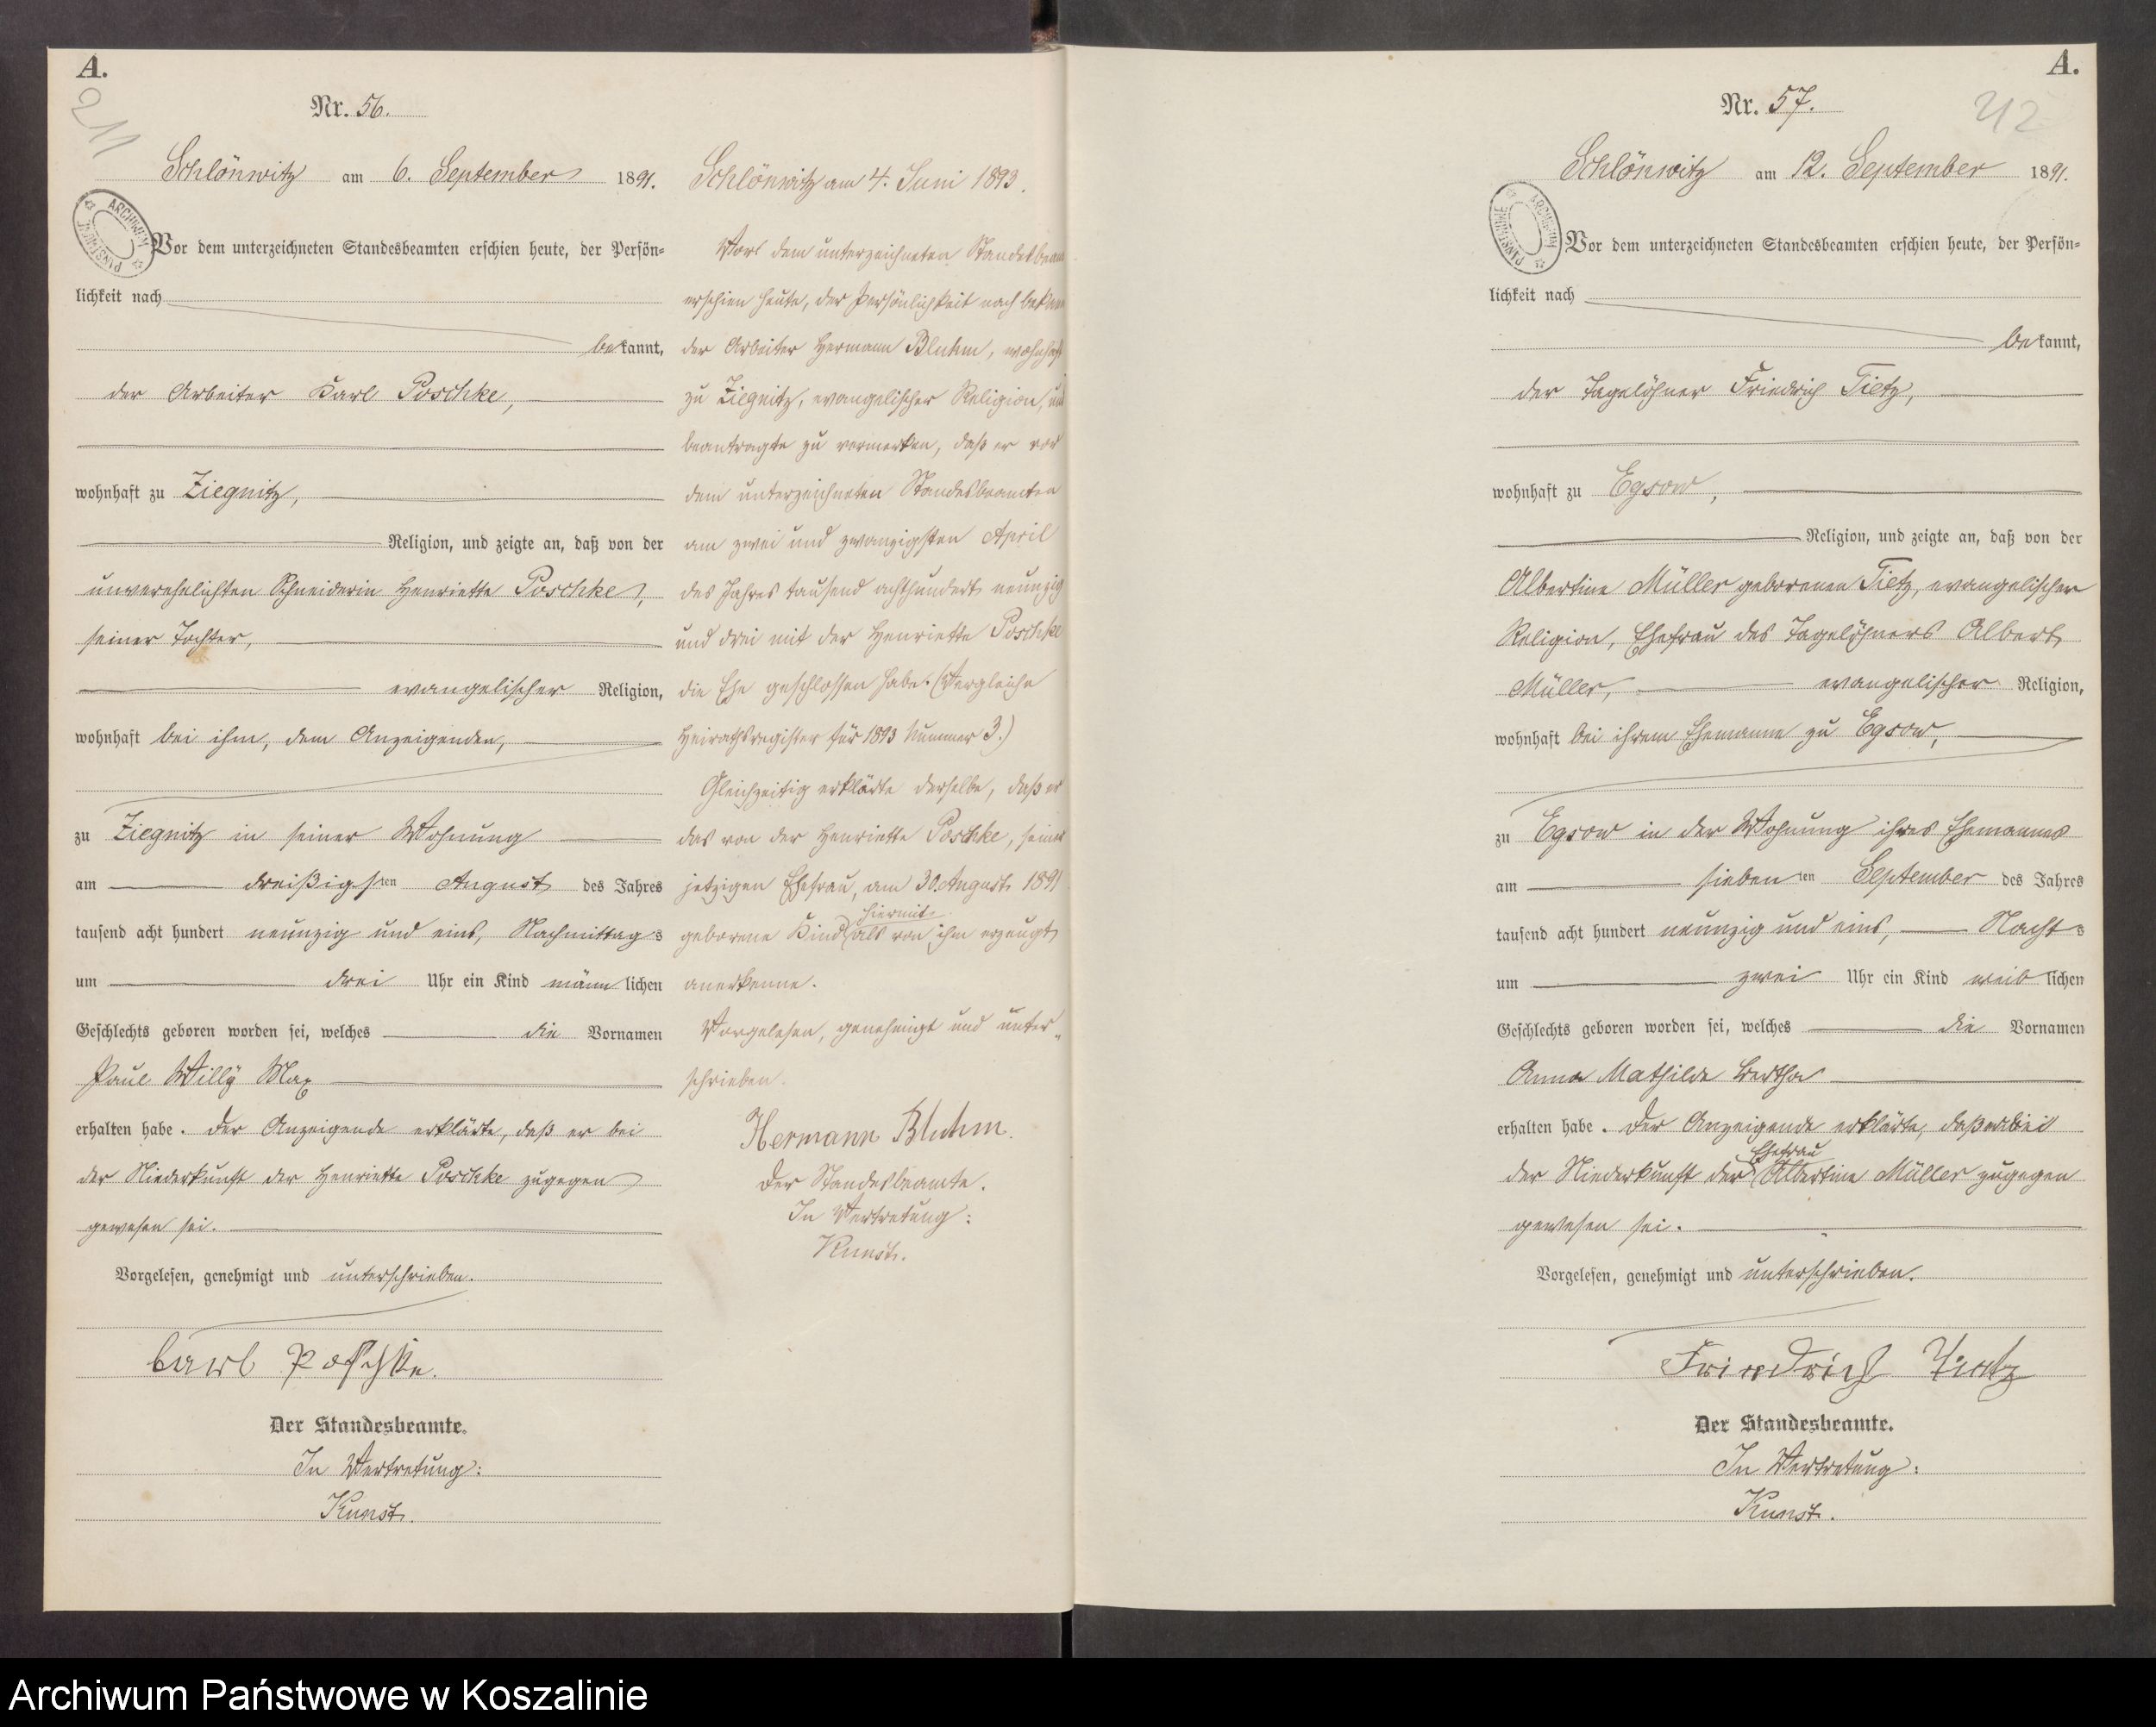 A.
211
Nr. 56.
Schlönwitz am 6. September 1891.
ARCHIWUM PAŃSTWOWE
Vor dem unterzeichneten Standesbeamten erschien heute, der Persön=
lichkeit nach
bekannt,
der Arbeiter Karl Poschke,
wohnhaft zu Ziegnitz,
Religion, und zeigte an, daß von der
unverehelichten Schneiderin Henriette Poschke,
seiner Tochter,
evangelischer Religion,
wohnhaft bei ihm, dem Anzeigenden,
zu Ziegnitz in seiner Wohnung
am dreißigsten August des Jahres
tausend acht hundert neunzig und eins, Nachmittags
um drei Uhr ein Kind männlichen
Geschlechts geboren worden sei, welches die Vornamen
Paul Willy Max
erhalten habe. Der Anzeigende erklärte, daß er bei
der Niederkunft der Henriette Poschke zugegen
gewesen sei.
Vorgelesen, genehmigt und unterschrieben.
Carl Poschke.
Der Standesbeamte.
In Vertretung:
Kunst.
Schlönwitz am 4. Juni 1893.
Vor dem unterzeichneten Standesbeam
erschien heute, der Persönlichkeit nach bekann
der Arbeiter Hermann Bluhm, wohnhaft
zu Ziegnitz, evangelischer Religion, und
beantragte zu vermerken, daß er vor
dem unterzeichneten Standesbeamten
am zwei und zwanzigsten April
des Jahres tausend achthundert neunzig
und drei mit der Henriette Poschke
die Ehe geschlossen habe. (Vergleiche
Heirathsregister für 1893 Nummer 3.)
Gleichzeitig erklärte derselbe, daß er
das von der Henriette Poschke, seiner
jetzigen Ehefrau, am 30. August 1891
hiermit
geborene Kind als von ihm erzeugt
anerkenne.
Vorgelesen, genehmigt und unter„
schrieben.
Hermann Bluhm.
Der Standesbeamte.
In Vertretung:
Kunst.
A.
212
Nr. 57.
Schlönwitz am 12. September 1891.
ARCHIWUM PAŃSTWOWE
Vor dem unterzeichneten Standesbeamten erschien heute, der Persön=
lichkeit nach
bekannt,
der Tagelöhner Friedrich Tietz,
wohnhaft zu Egsow,
Religion, und zeigte an, daß von der
Albertine Müller geborenen Tietz, evangelischer
Religion, Ehefrau des Tagelöhners Albert
Müller, evangelischer Religion,
wohnhaft bei ihrem Ehemanne zu Egsow,
zu Egsow in der Wohnung ihres Ehemannes
am siebenten September des Jahres
tausend acht hundert neunzig und eins, Nachts
um zwei Uhr ein Kind weiblichen
Geschlechts geboren worden sei, welches die Vornamen
Anna Mathilde Bertha
erhalten habe. Der Anzeigende erklärte, daß er bei
Ehefrau
der Niederkunft der Albertine Müller zugegen
gewesen sei.
Vorgelesen, genehmigt und unterschrieben.
Friedrich Tietz
Der Standesbeamte.
In Vertretung:
Kunst.
Archiwum Państwowe w Koszalinie